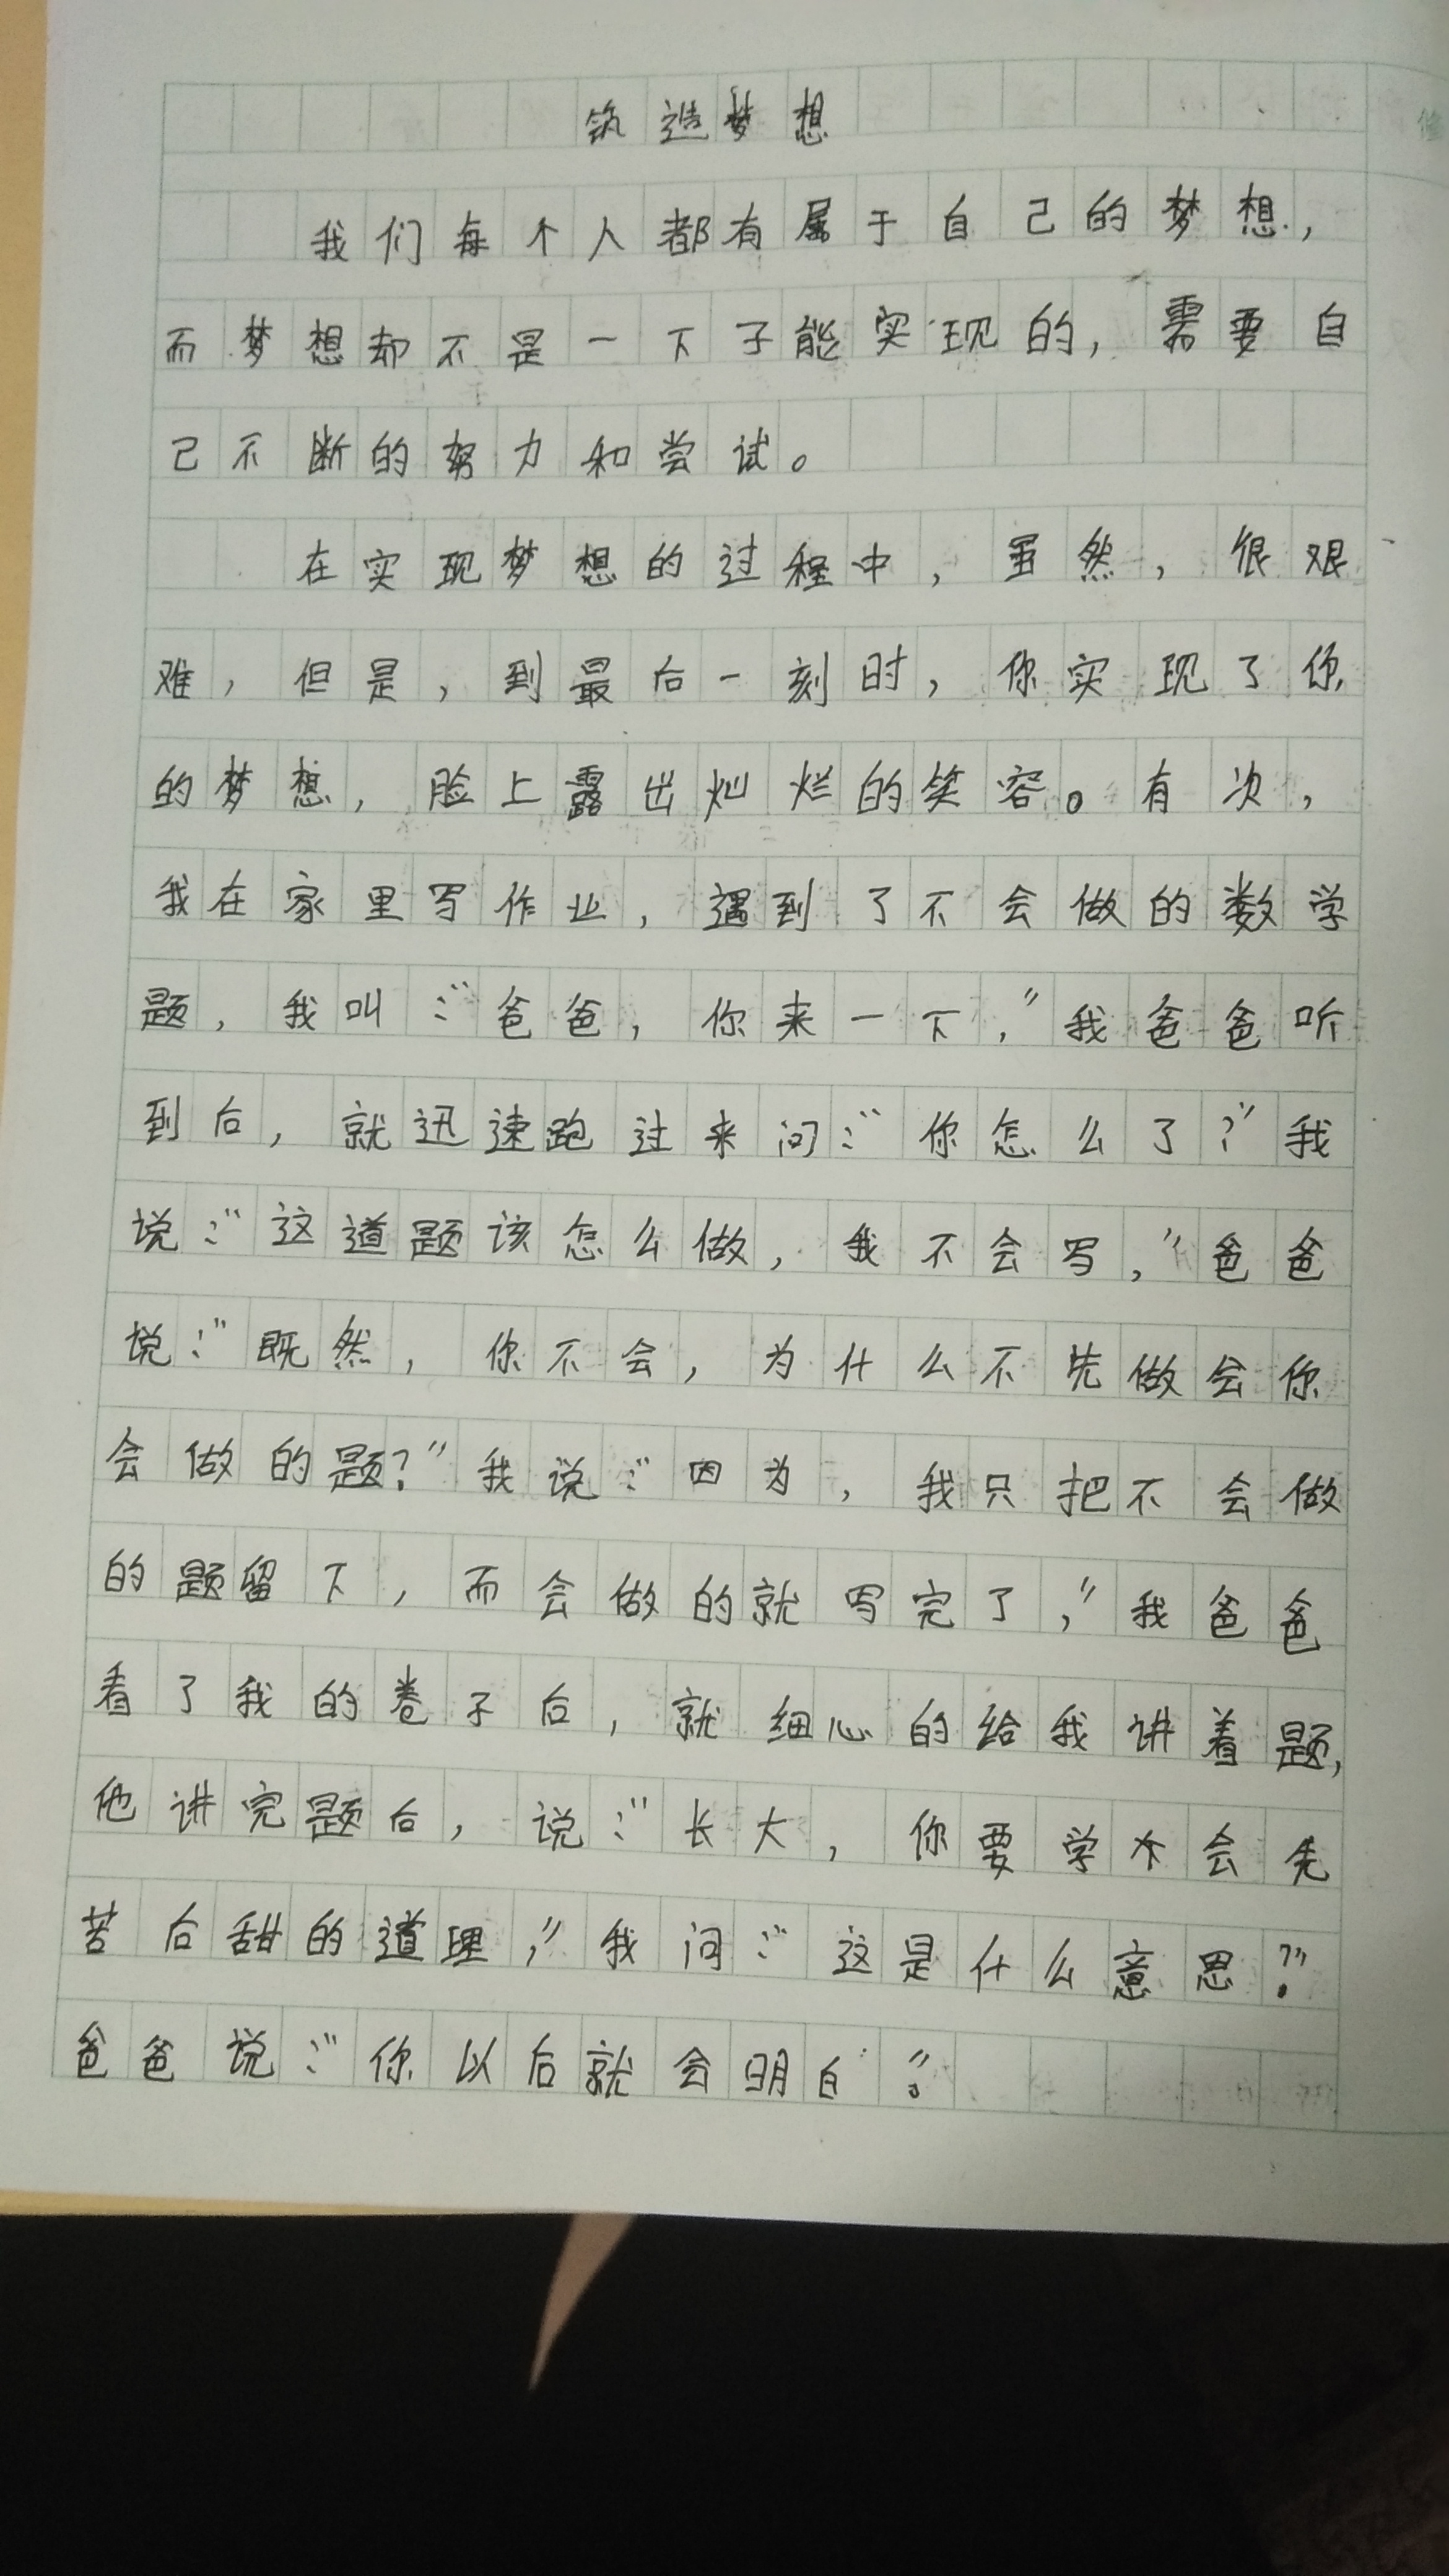 筑造梦想
我们每个人都有属于自己的梦想，
而梦想却不是一下子能实现的，需要自
己不断的努力和尝试。
在实现梦想的过程中，虽然，很艰
难，但是，到最后一刻时，你实现了你
的梦想，脸上露出灿烂的笑容。有次，
我在家里写作业，遇到了不会做的数学
题，我叫：“爸爸，你来一下，”我爸爸听
到后，就迅速跑过来问：“你怎么了？”我
说：“这道题该怎么做，我不会写，”爸爸
说：“既然，你不会，为什么不先做会你
会做的题？”我说：“因为，我只把不会做
的题留下，而会做的就写完了，”我爸爸
看了我的卷子后，就细心的给我讲着题，
他讲完题后，说：“长大，你要学会先
苦后甜的道理，”我问：“这是什么意思？”
爸爸说：“你以后就会明白。”